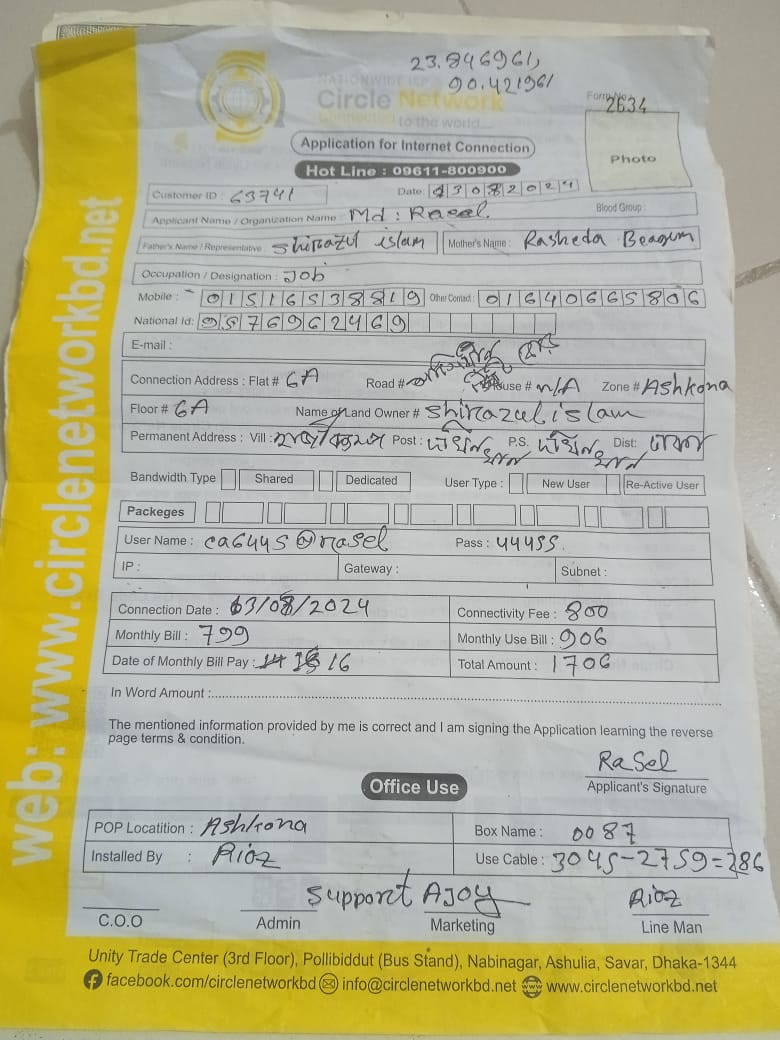 23.846961,
90.421961
NATIONWIDE ISP
Circle Network
Connected to the world...
Form No. 2634
Photo
Application for Internet Connection
Hot Line : 09611-800900
Customer ID : 63741 Date: 13082024
Applicant Name / Organization Name : Md : Rasel. Blood Group :
Father's Name / Representative : Shirazul islam Mother's Name : Rasheda Beagum
Occupation / Designation : Job
Mobile : 01516538819 Other Contact : 01640665806
National Id: 9576962469
E-mail :
Connection Address : Flat # 6A Road # House # n/A Zone # Ashkona
Floor # 6A Name of Land Owner # Shirazul islam
Permanent Address : Vill : Post : দক্ষিনখান P.S. দক্ষিনখান Dist: ঢাকা
Bandwidth Type Shared Dedicated User Type : New User Re-Active User
Packeges
User Name : ca6445@rasel Pass : 44455.
IP : Gateway : Subnet :
Connection Date : 13/08/2024 Connectivity Fee : 800
Monthly Bill : 799 Monthly Use Bill : 906
Date of Monthly Bill Pay : 16 Total Amount : 1706
In Word Amount :
The mentioned information provided by me is correct and I am signing the Application learning the reverse
page terms & condition.
Rasel
Applicant's Signature
Office Use
POP Locatition : Ashkona Box Name : 0087
Installed By : Riaz Use Cable : 3045-2759=286
Support AJOY Riaz
C.O.O Admin Marketing Line Man
Unity Trade Center (3rd Floor), Pollibiddut (Bus Stand), Nabinagar, Ashulia, Savar, Dhaka-1344
facebook.com/circlenetworkbd info@circlenetworkbd.net www.circlenetworkbd.net
web: www.circlenetworkbd.net